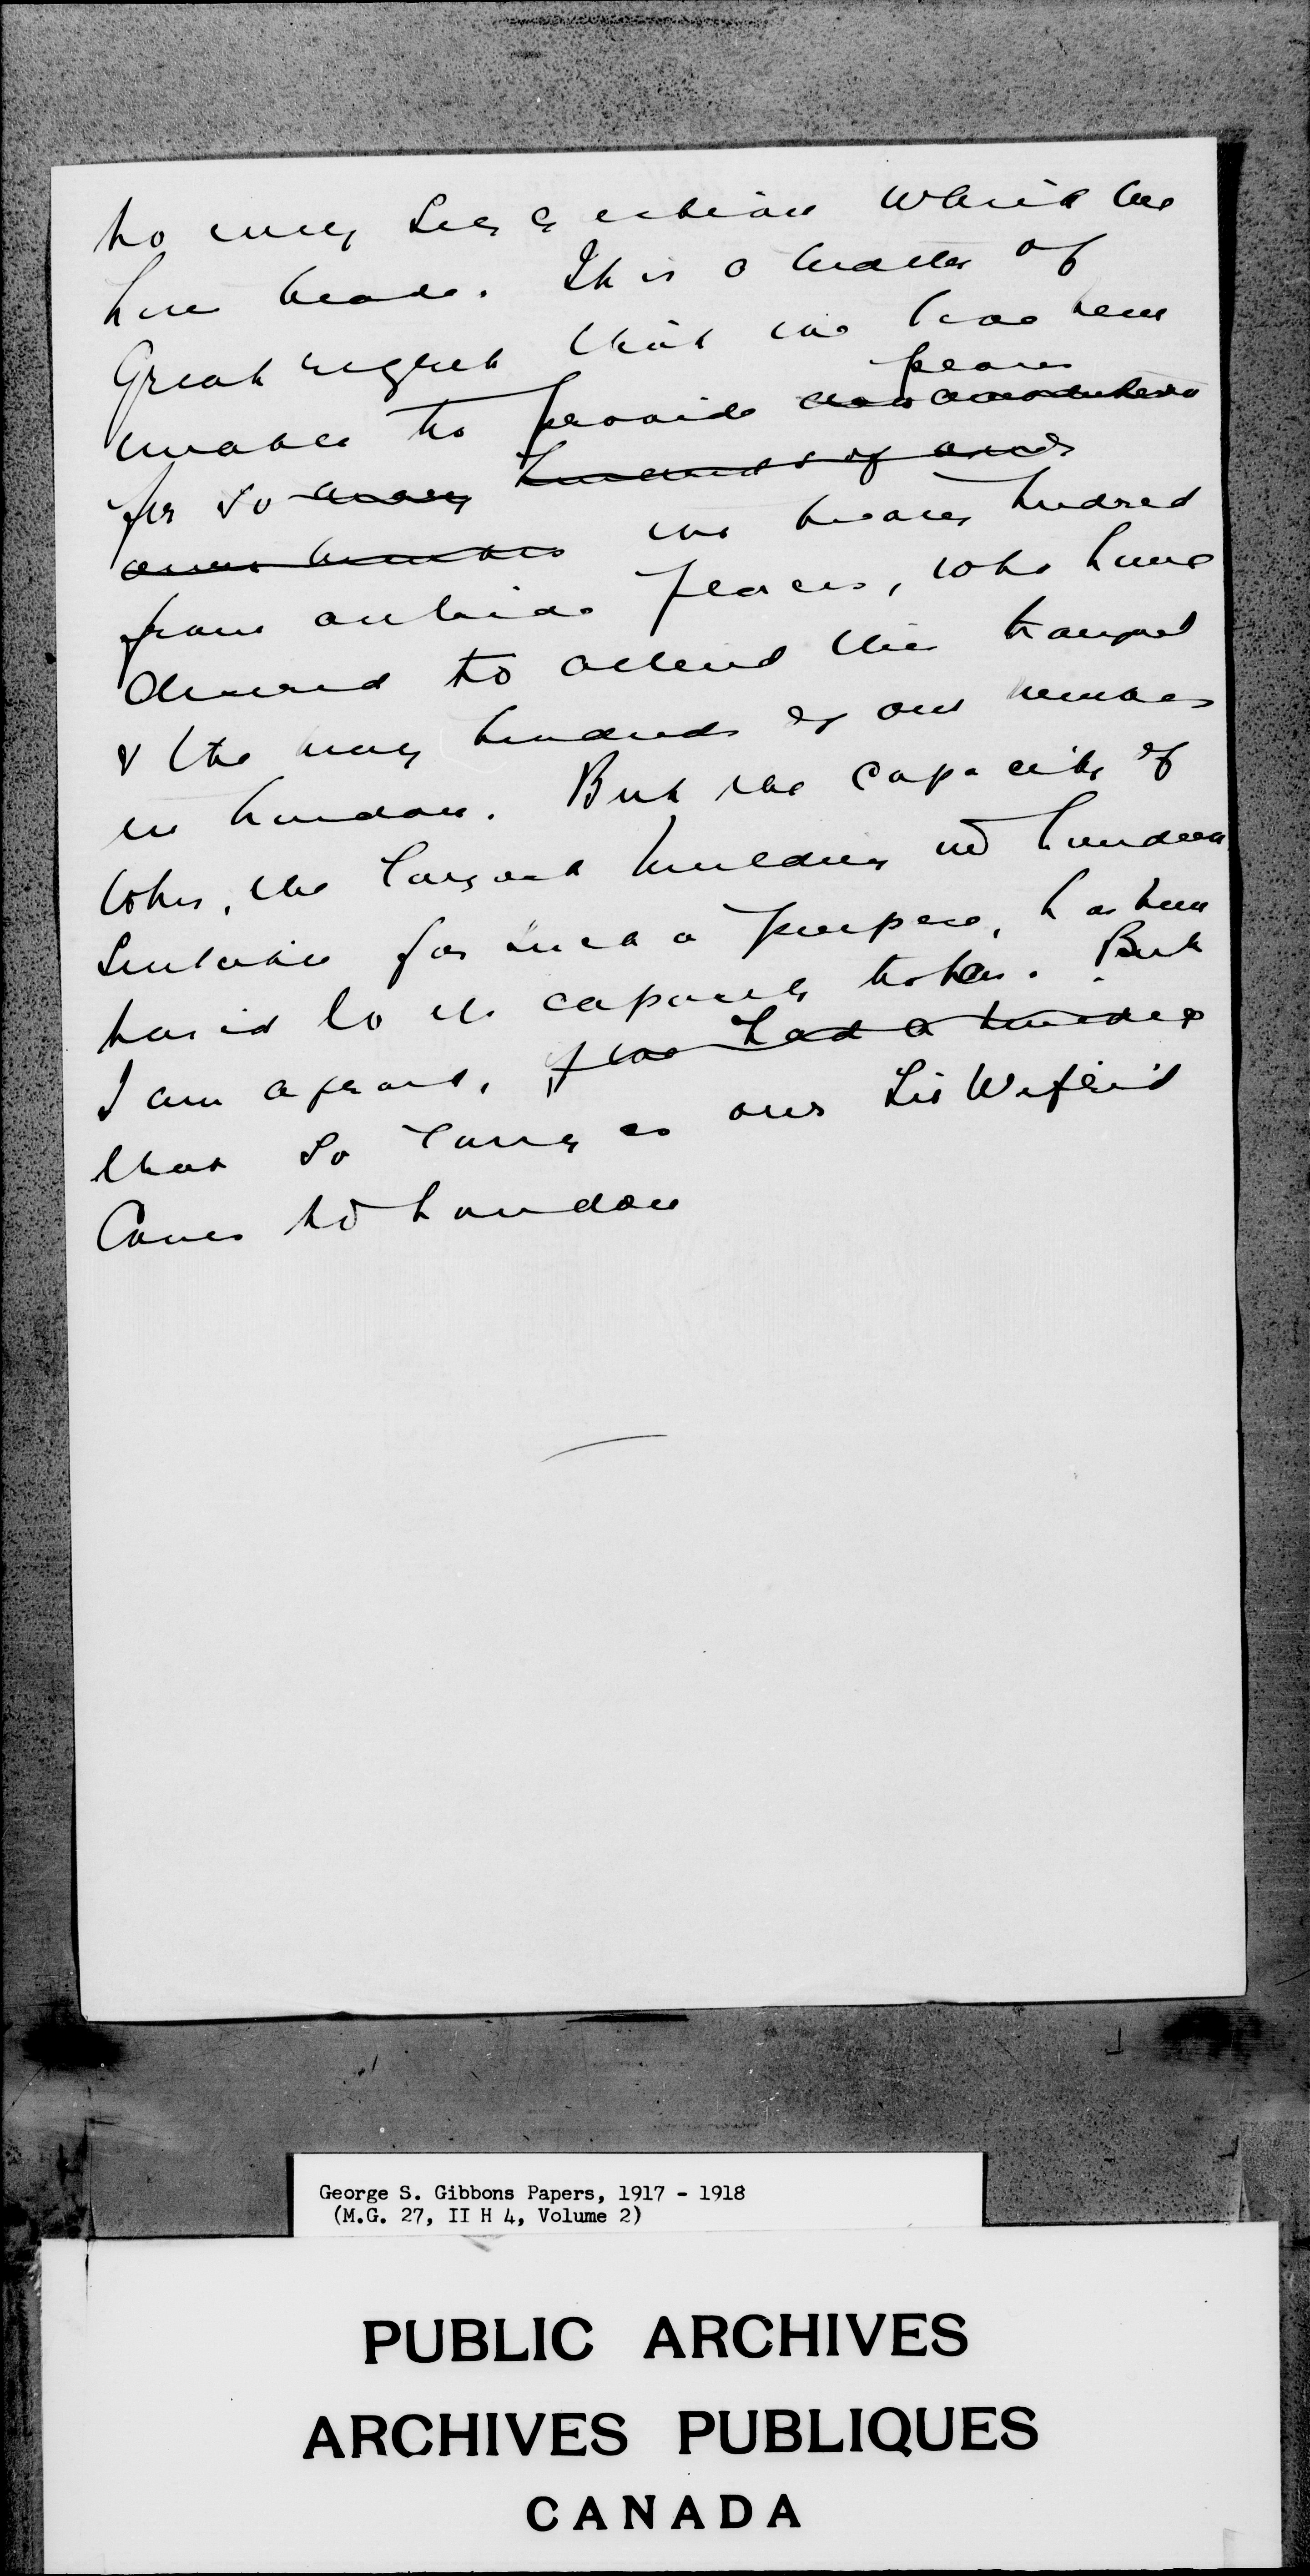 to my suggestion which we
have made. It is a matter of
great regret that we have been
unable to provide places accommodation
for so many hundreds of our
our members the many hundred
from outside places, who have
desired to attend this banquet
& the many hundreds of our members
in London. But the capacity of
the largest building in London
suitable for such a purpose, has been
to its capacity taken. But
I am afraid, if we had a building
that so long as our Sir Wilfrid
Comes to London
George S. Gibbons Papers, 1917 - 1918
(M.G. 27, II H 4, Volume 2)
PUBLIC ARCHIVES
ARCHIVES PUBLIQUES
CANADA